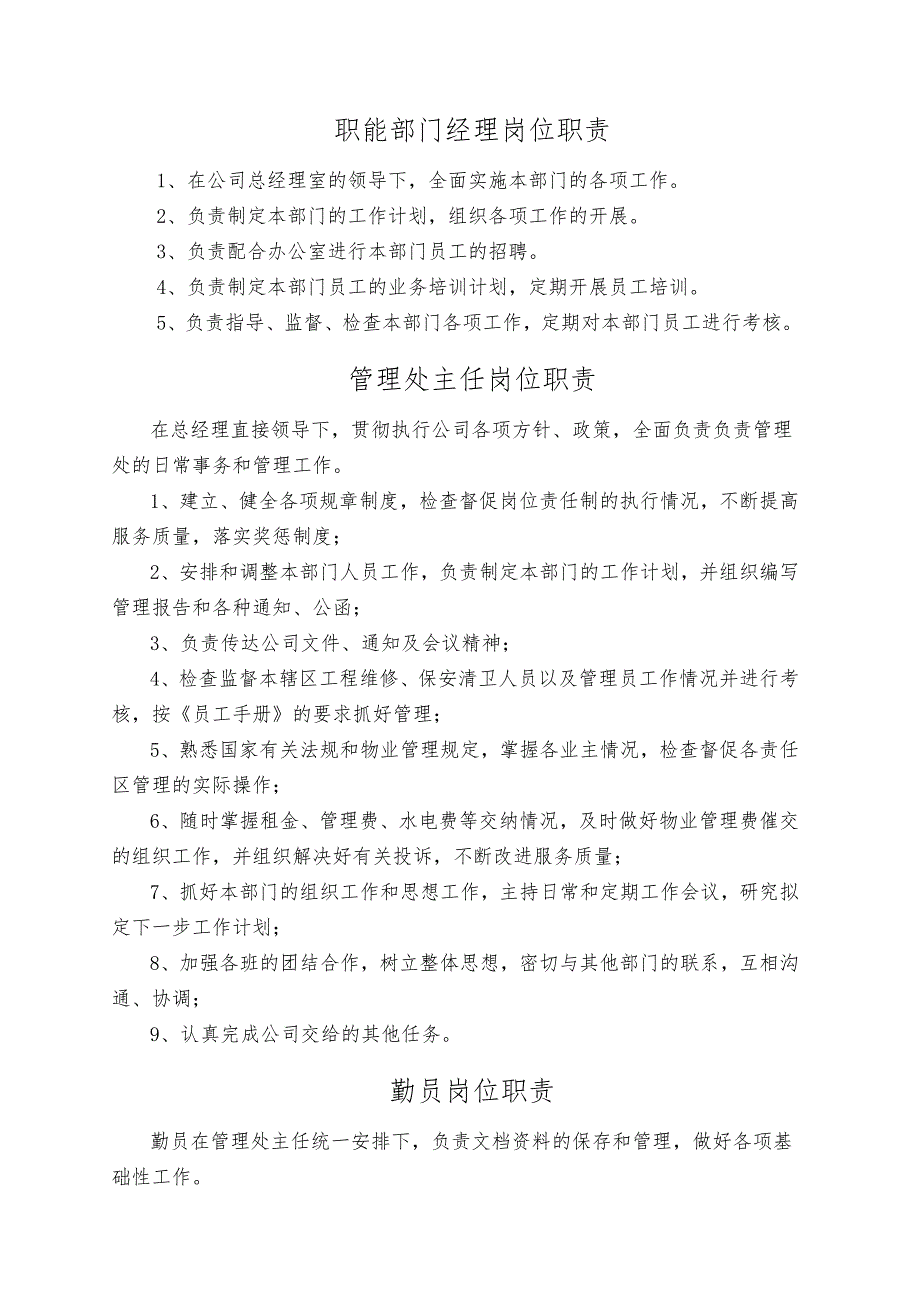 职能部门经理岗位职责
1、在公司总经理室的领导下，全面实施本部门的各项工作。
2、负责制定本部门的工作计划，组织各项工作的开展。
3、负责配合办公室进行本部门员工的招聘。
4、负责制定本部门员工的业务培训计划，定期开展员工培训。
5、负责指导、监督、检查本部门各项工作，定期对本部门员工进行考核。
管理处主任岗位职责
在总经理直接领导下，贯彻执行公司各项方针、政策，全面负责负责管理
处的日常事务和管理工作。
1、建立、健全各项规章制度，检查督促岗位责任制的执行情况，不断提高
服务质量，落实奖惩制度；
2、安排和调整本部门人员工作，负责制定本部门的工作计划，并组织编写
管理报告和各种通知、公函；
3、负责传达公司文件、通知及会议精神；
4、检查监督本辖区工程维修、保安清卫人员以及管理员工作情况并进行考
核，按《员工手册》的要求抓好管理；
5、熟悉国家有关法规和物业管理规定，掌握各业主情况，检查督促各责任
区管理的实际操作；
6、随时掌握租金、管理费、水电费等交纳情况，及时做好物业管理费催交
的组织工作，并组织解决好有关投诉，不断改进服务质量；
7、抓好本部门的组织工作和思想工作，主持日常和定期工作会议，研究拟
定下一步工作计划；
8、加强各班的团结合作，树立整体思想，密切与其他部门的联系，互相沟
通、协调；
9、认真完成公司交给的其他任务。
勤员岗位职责
勤员在管理处主任统一安排下，负责文档资料的保存和管理，做好各项基
础性工作。